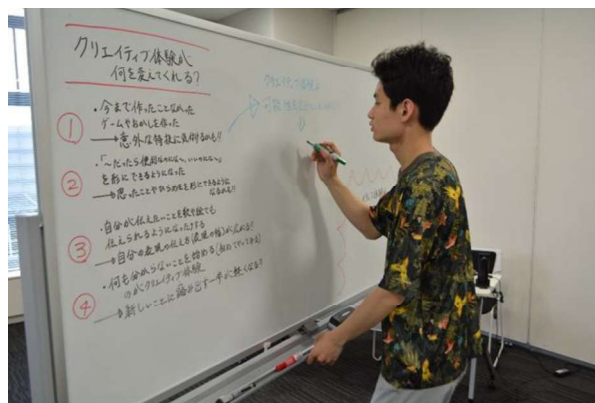 クリエイティブ体験が
何を変えてくれる?
① ・今まで作ったことなかった
ゲームやおかしを作った
→意外な特技に気付けるかも!!
② ・「〜だったら便利なのになぁ、いいのになぁ〜」
を形にできるようになった
→思ったことやひらめきを形にできるように
なれるかも!!
③ ・自分が伝えたいことを歌や絵でも
伝えられるようになったりする
→自分の表現の伝え方(表現の幅)が広がる?
④ ・何も分からないことを始める(初めてやってみる)
のがクリエイティブ体験
→新しいことに踏み出す一歩が軽くなる?
クリエイティブ体験は